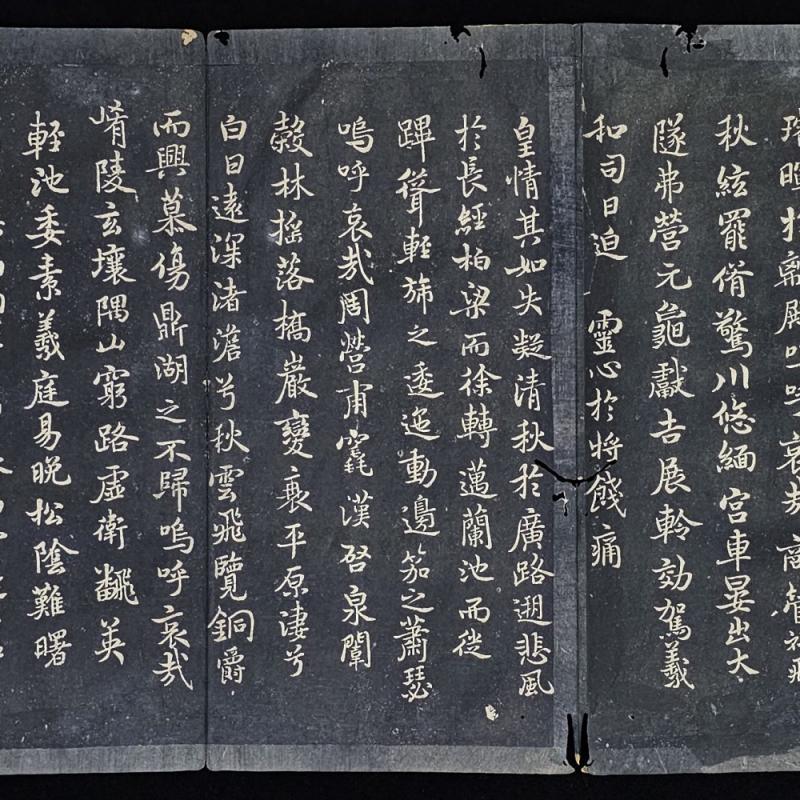 離殿嗚呼哀哉商管初飛
秋紘罷脩驚川悠緬宮車晏出大
隧弗營元龜獻吉展軨効駕羲
和司日迫 靈心於將餞痛
皇情其如失凝清秋於廣路遡悲風
於長經柏梁而徐轉邁蘭池而徙
蹕聳輕旆之逶迤動邊笳之蕭瑟
嗚呼哀哉周營甫竁漢啓泉闈
穀林搖落橋巖變衰平原淒兮
白日遠深渚澹兮秋雲飛覽銅爵
而興慕傷鼎湖之不歸嗚呼哀哉
崤陵玄壤隅山窮路虛衛飜英
輕池委素羲庭易晚松陰難曙